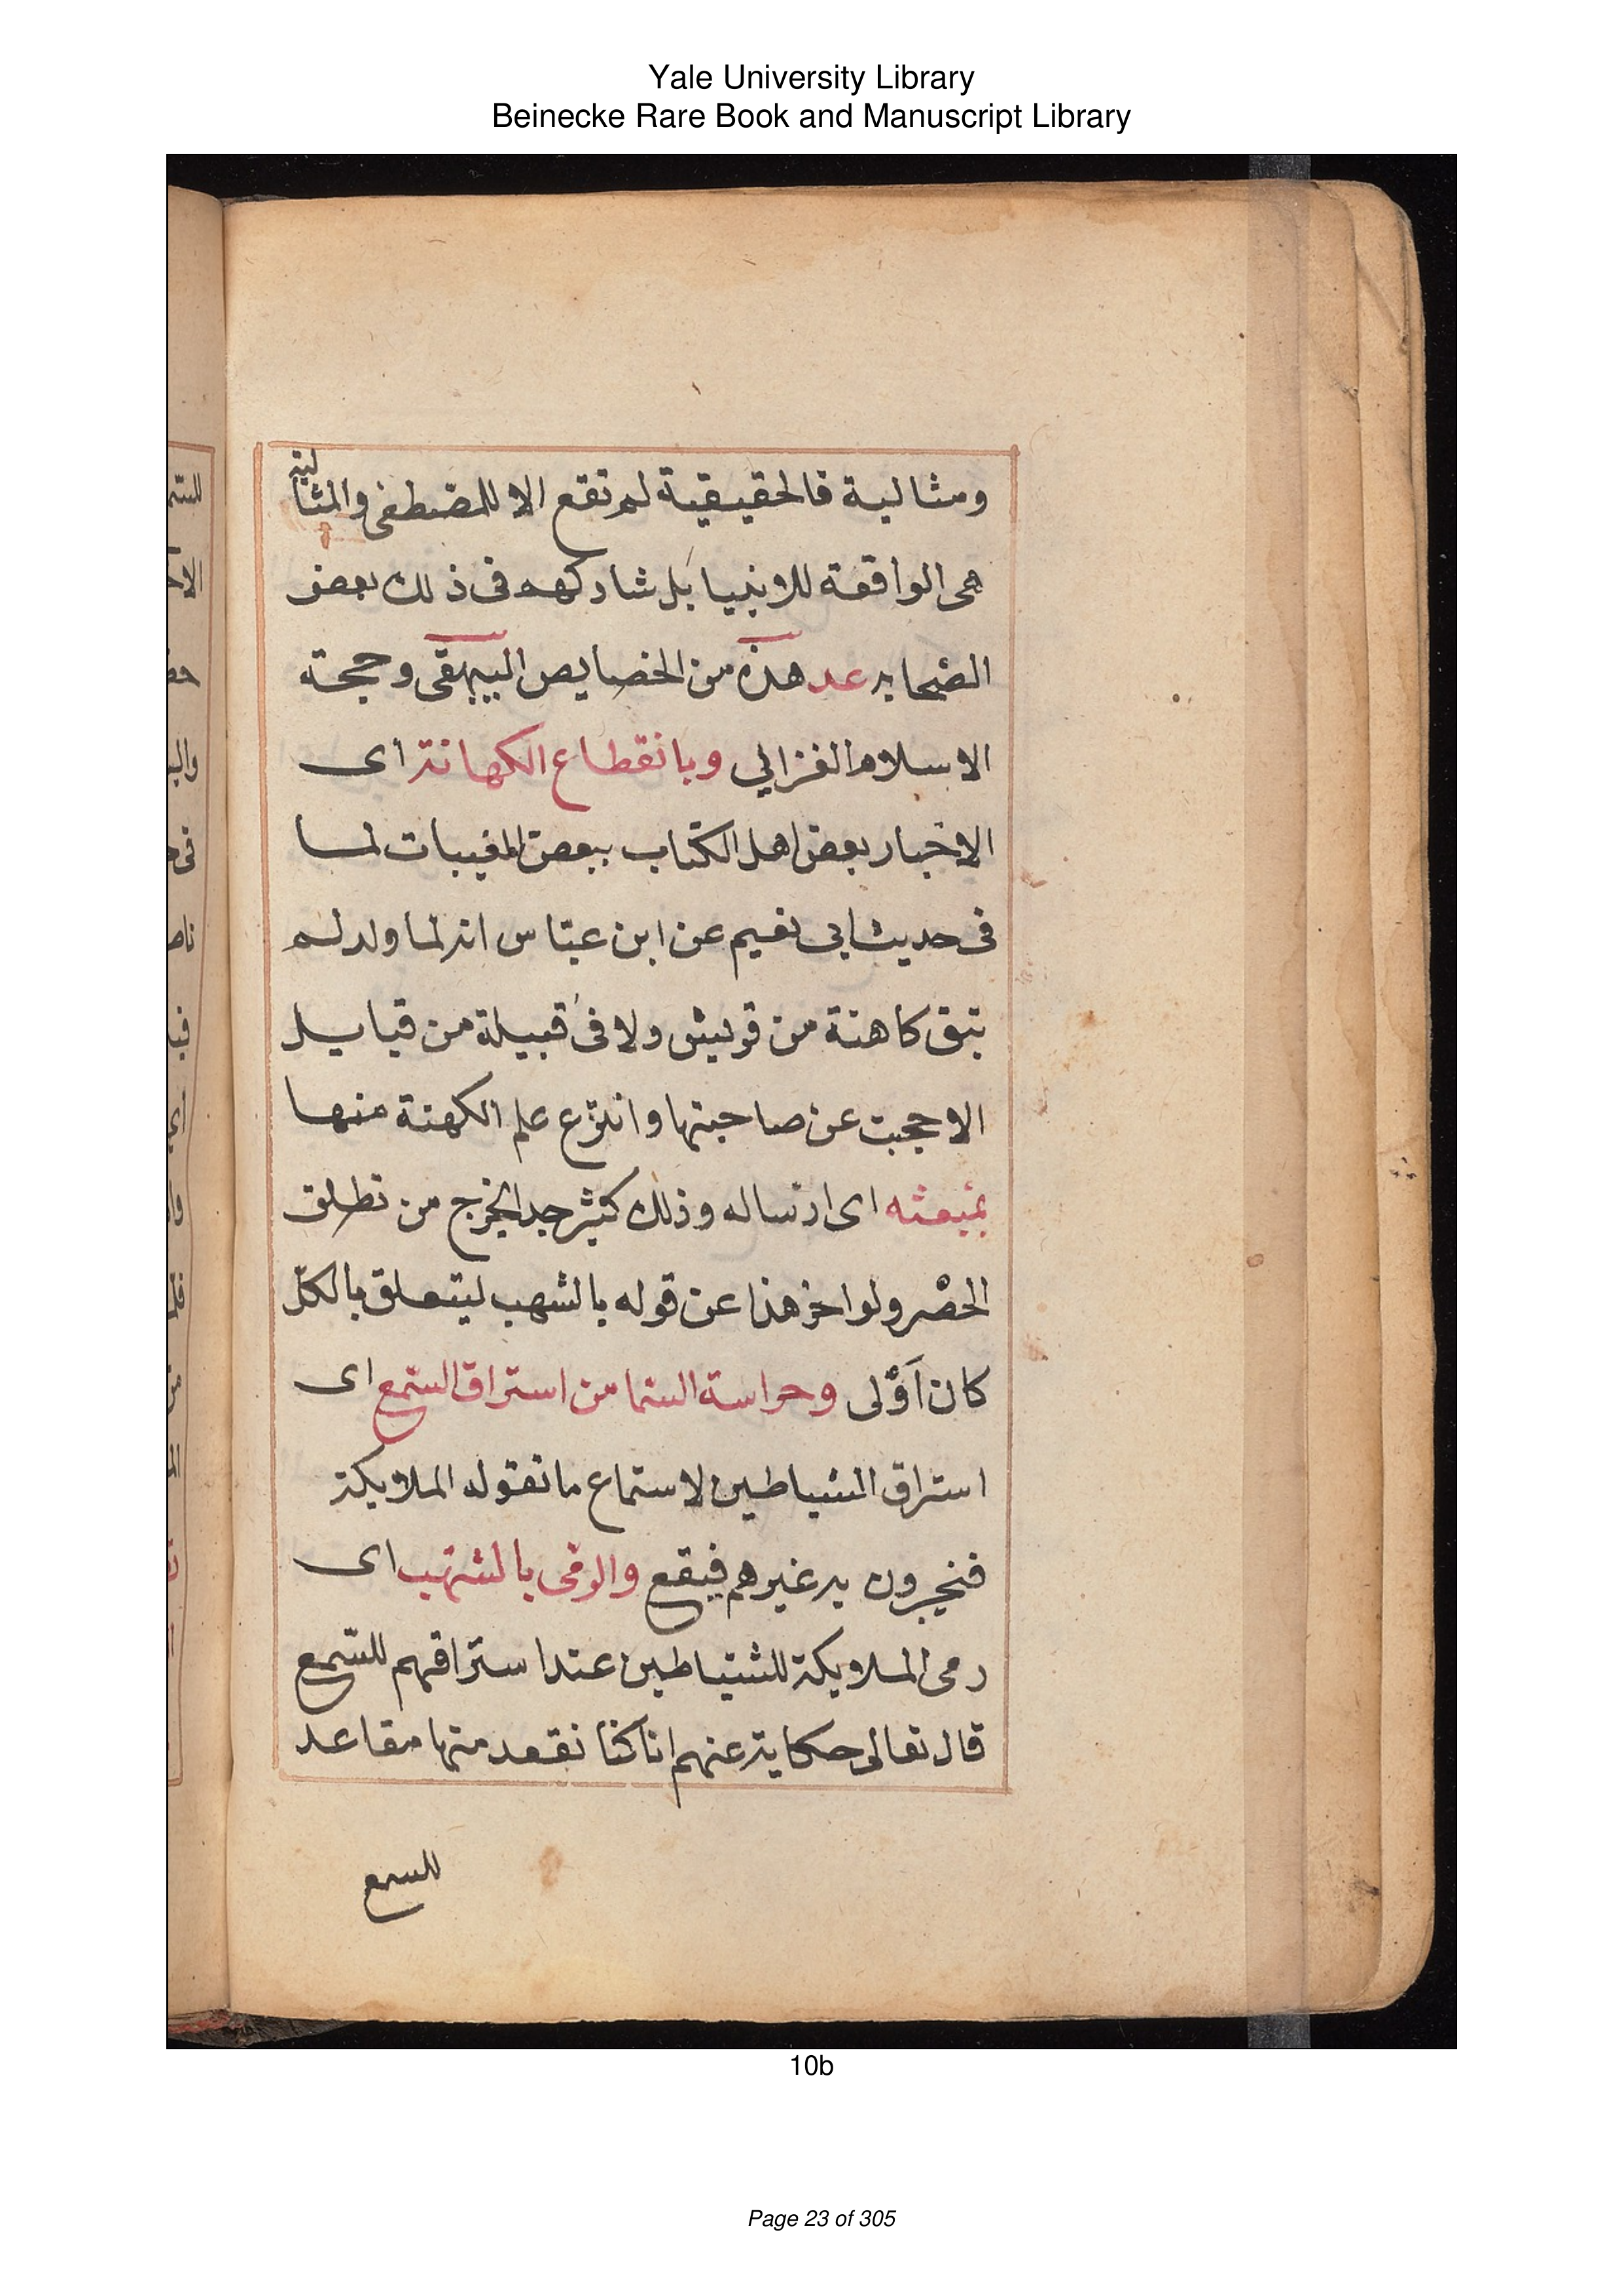 Yale University Library
Beinecke Rare Book and Manuscript Library
ومثالية فالحقيقية لم تقع الا للمصطفى والمثالية
هى الواقعة للانبيا بل شاركهم فى ذلك بعض
الصحابه عد هذه من الخصايص البيهقى وحجة
الاسلام الغزالي وبانقطاع الكهانة اى
الاخبار بعض اهل الكتاب ببعض المغيبات لما
فى حديث ابى نعيم عن ابن عباس انه لما ولد لم
تبق كاهنة من قريش ولا فى قبيلة من قبايل
الا حجبت عن صاحبتها وانتزع علم الكهنة منها
بمبعثه اى ارساله وذلك كثير جدا لخرج من تطلق
الحصر ولو اخر هذا عن قوله بالشهب ليتعلق بالكل
كان اَوْلى وحراسة السما من استراق السّمع اى
استراق الشياطين لاستماع ما تقوله الملايكة
فنحبرون به غيرهم فيقع والرمى بالشهب اى
رمى الملايكة للشياطين عند استراقهم للسّمع
قال تعالى حكاية عنهم انا كنا نقعد منها مقاعد
للسمع
10b
Page 23 of 305